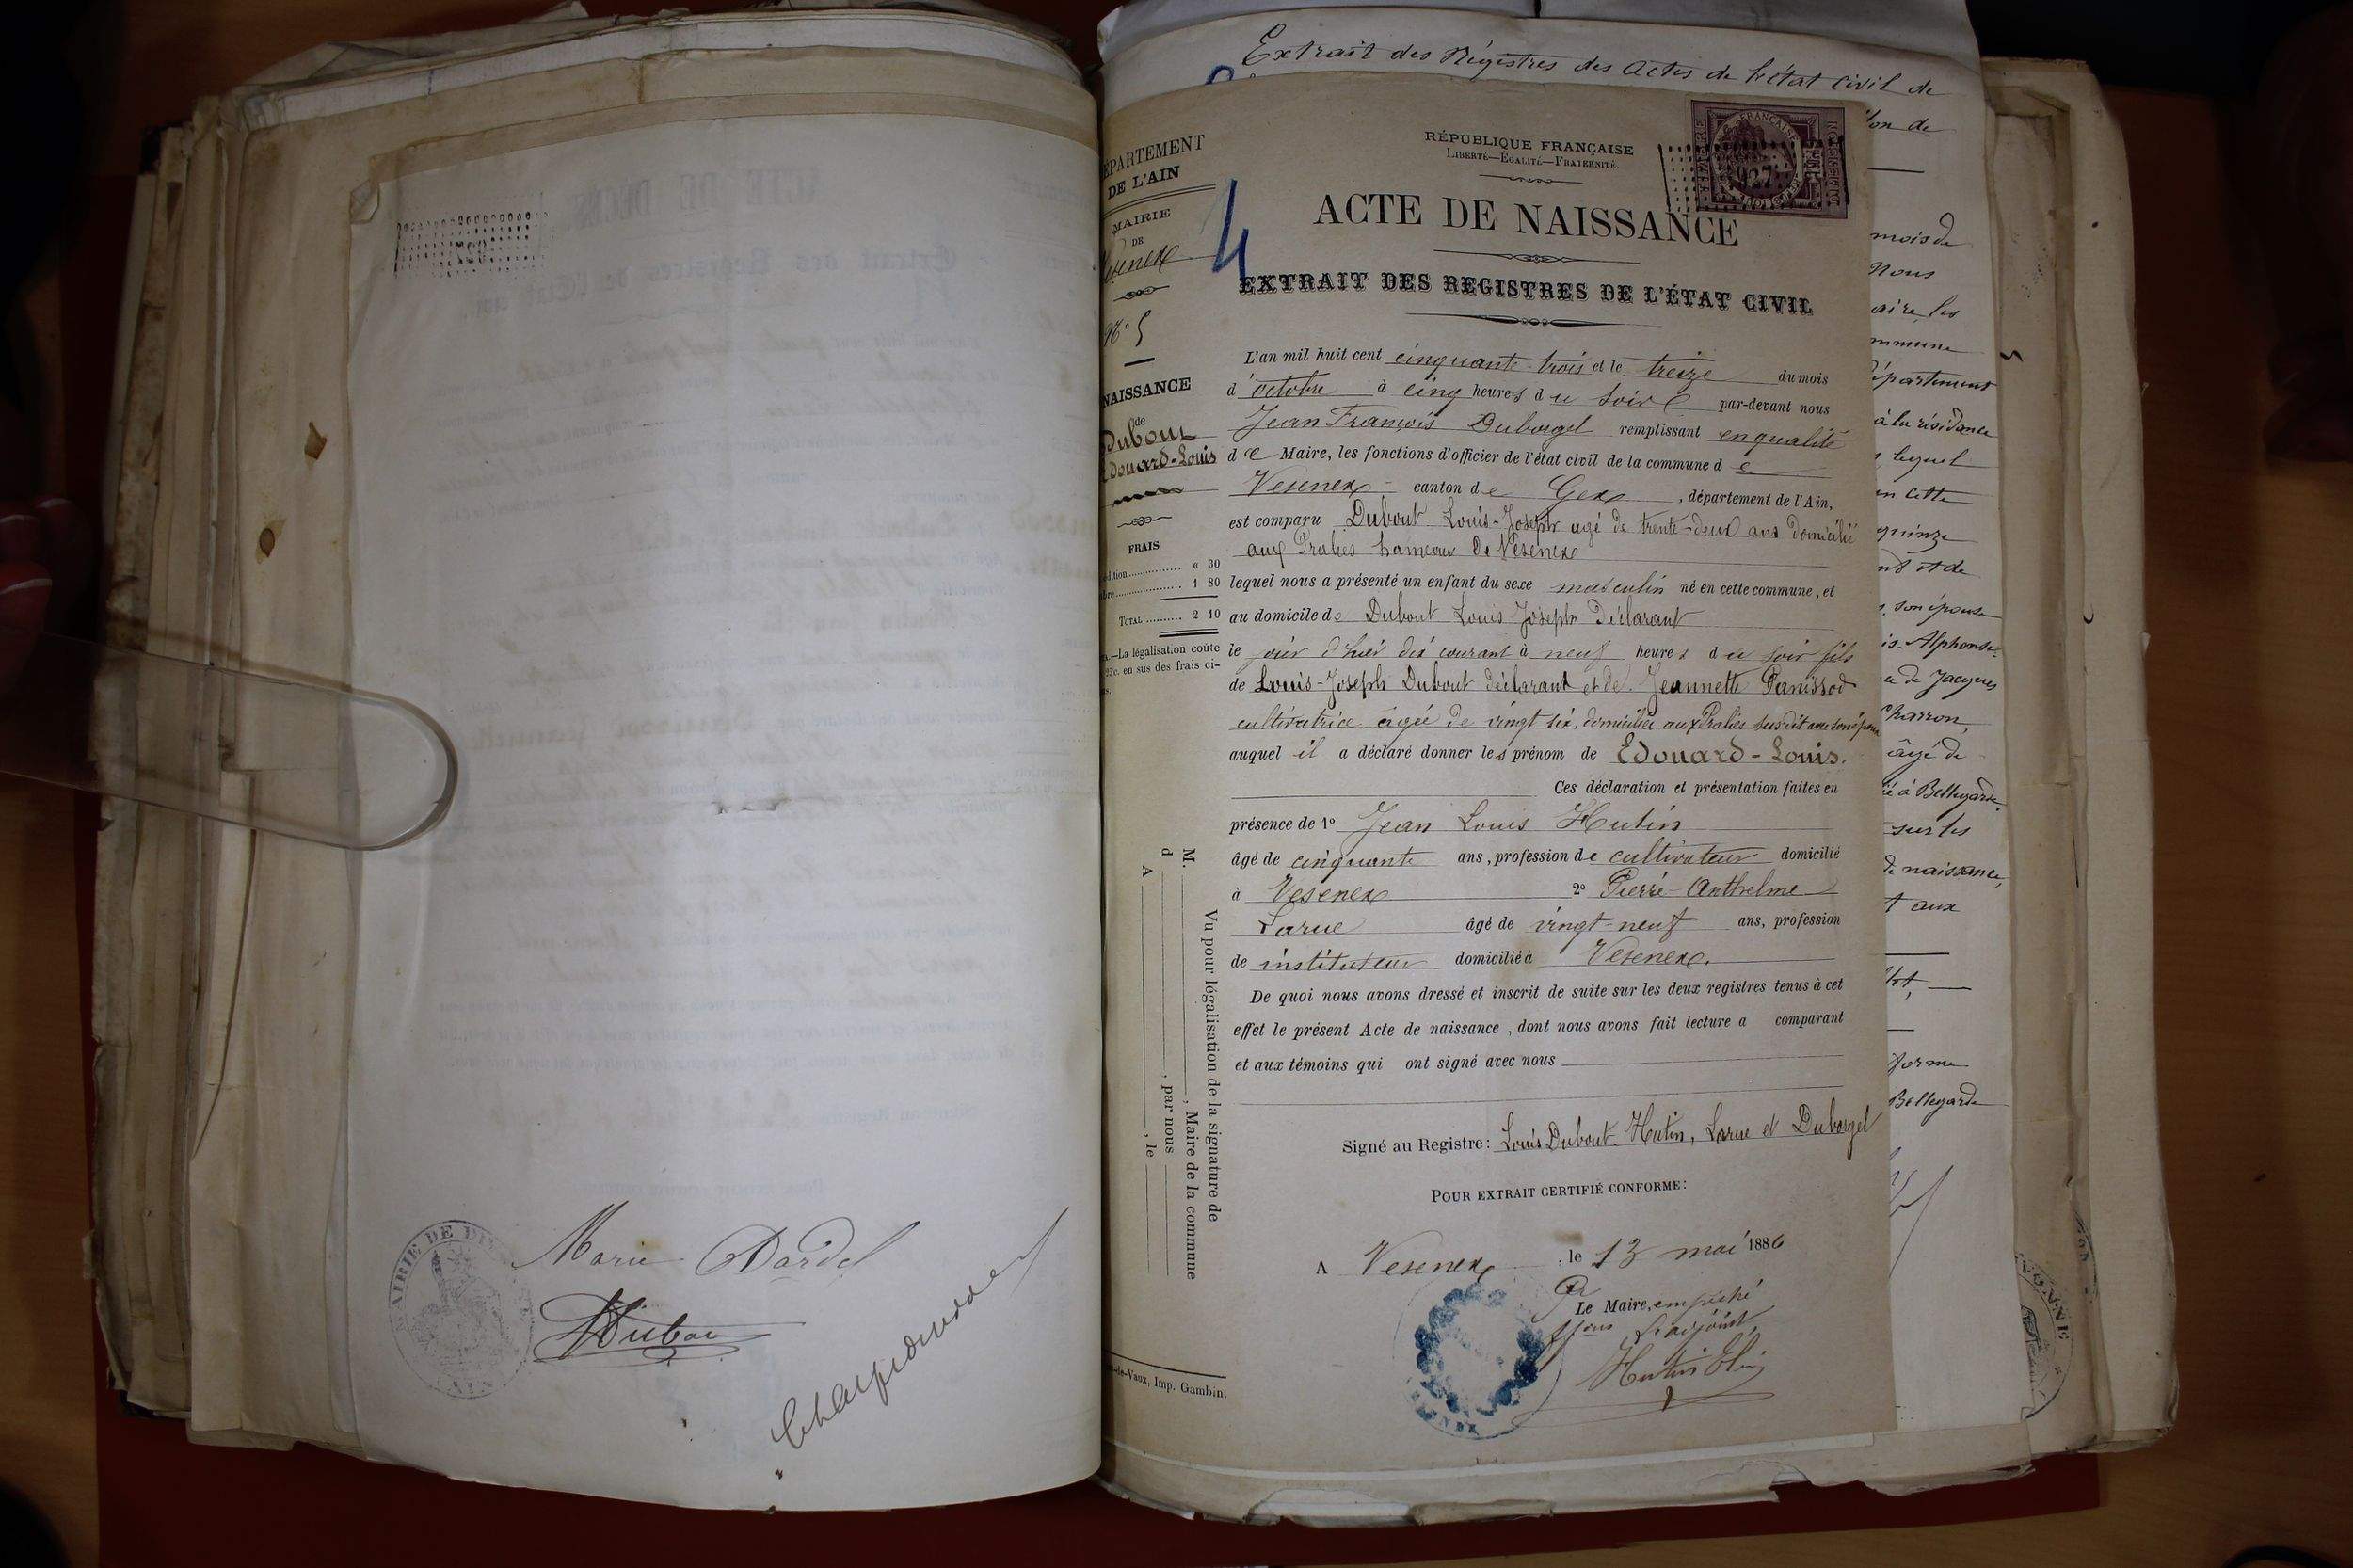 MAIRIE DE
AIN
Marie Dardel
Dubou
Charpendre
Extrait des Régistres des Actes de l'état civil de
DÉPARTEMENT
DE L'AIN
MAIRIE
DE
Vesenex
No 5
NAISSANCE
de
Dubout
Edouard-Louis
FRAIS
« 30
1 80
TOTAL .......... 2 10
La légalisation coûte
25c. en sus des frais ci-
4
RÉPUBLIQUE FRANÇAISE
LIBERTÉ—ÉGALITÉ—FRATERNITÉ.
927
ACTE DE NAISSANCE
EXTRAIT DES REGISTRES DE L'ÉTAT CIVIL
L'an mil huit cent cinquante-trois et le treize du mois
d'octobre à cinq heures du soir par-devant nous
Jean François Duborgel remplissant en qualité
de Maire, les fonctions d'officier de l'état civil de la commune de
Vesenex canton de Gex, département de l'Ain,
est comparu Dubout Louis-Joseph agé de trente-deux ans domicilié
aux Pralies hameau de Vesenex
lequel nous a présenté un enfant du sexe masculin né en cette commune, et
au domicile de Dubout Louis Joseph déclarant
le jour d'hier dix courant à neuf heures du soir fils
de Louis-Joseph Dubout déclarant et de Jeannette Panissod
cultivatrice agée de vingt six, domiciliée aux Pralies susdit
auquel il a déclaré donner les prénom de Edouard-Louis.
Ces déclaration et présentation faites en
présence de 1º Jean Louis Hutin
âgé de cinquante ans, profession de cultivateur domicilié
à Vesenex 2º Pierre-Anthelme
Larue âgé de vingt-neuf ans, profession
de instituteur domicilié à Vesenex.
De quoi nous avons dressé et inscrit de suite sur les deux registres tenus à cet
effet le présent Acte de naissance, dont nous avons fait lecture a comparant
et aux témoins qui ont signé avec nous
Signé au Registre: Louis Dubout. Hutin, Larue et Duborgel
POUR EXTRAIT CERTIFIÉ CONFORME:
A Vesenex, le 13 mai 1886
Pr
Le Maire, empêché
L'adjoint,
Hutin
Vu pour légalisation de la signature de
M. , Maire de la commune
d , par nous
A , le
-de-Vaux, Imp. Gambin.
mois de
Nous
aire, les
département
à la résidence
lequel
en cette
quinze
son épouse
is-Alphonse
de Jacques
Charron,
âgé de
à Bellegarde.
sur les
de naissance,
aux
Bellegarde